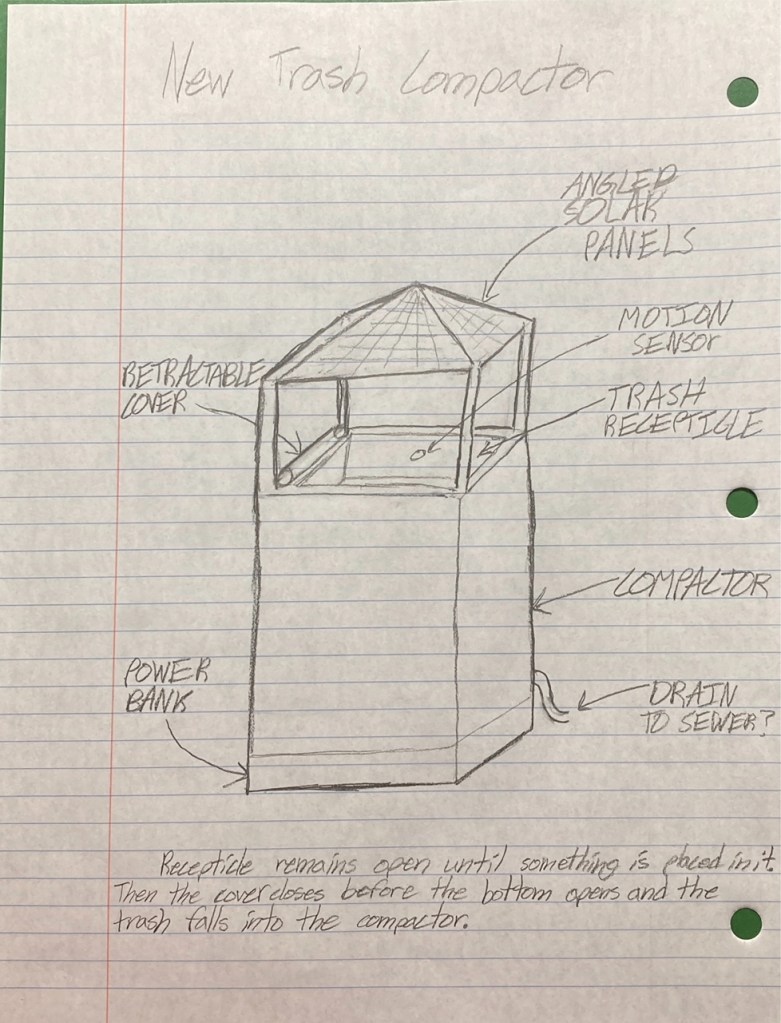 New Trash Compactor
ANGLED
SOLAR
PANELS
MOTION
SENSOR
RETRACTABLE
COVER
TRASH
RECEPTICLE
COMPACTOR
POWER
BANK
DRAIN
TO SEWER?
Recepticle remains open until something is placed in it.
Then the cover closes before the bottom opens and the
trash falls into the compactor.